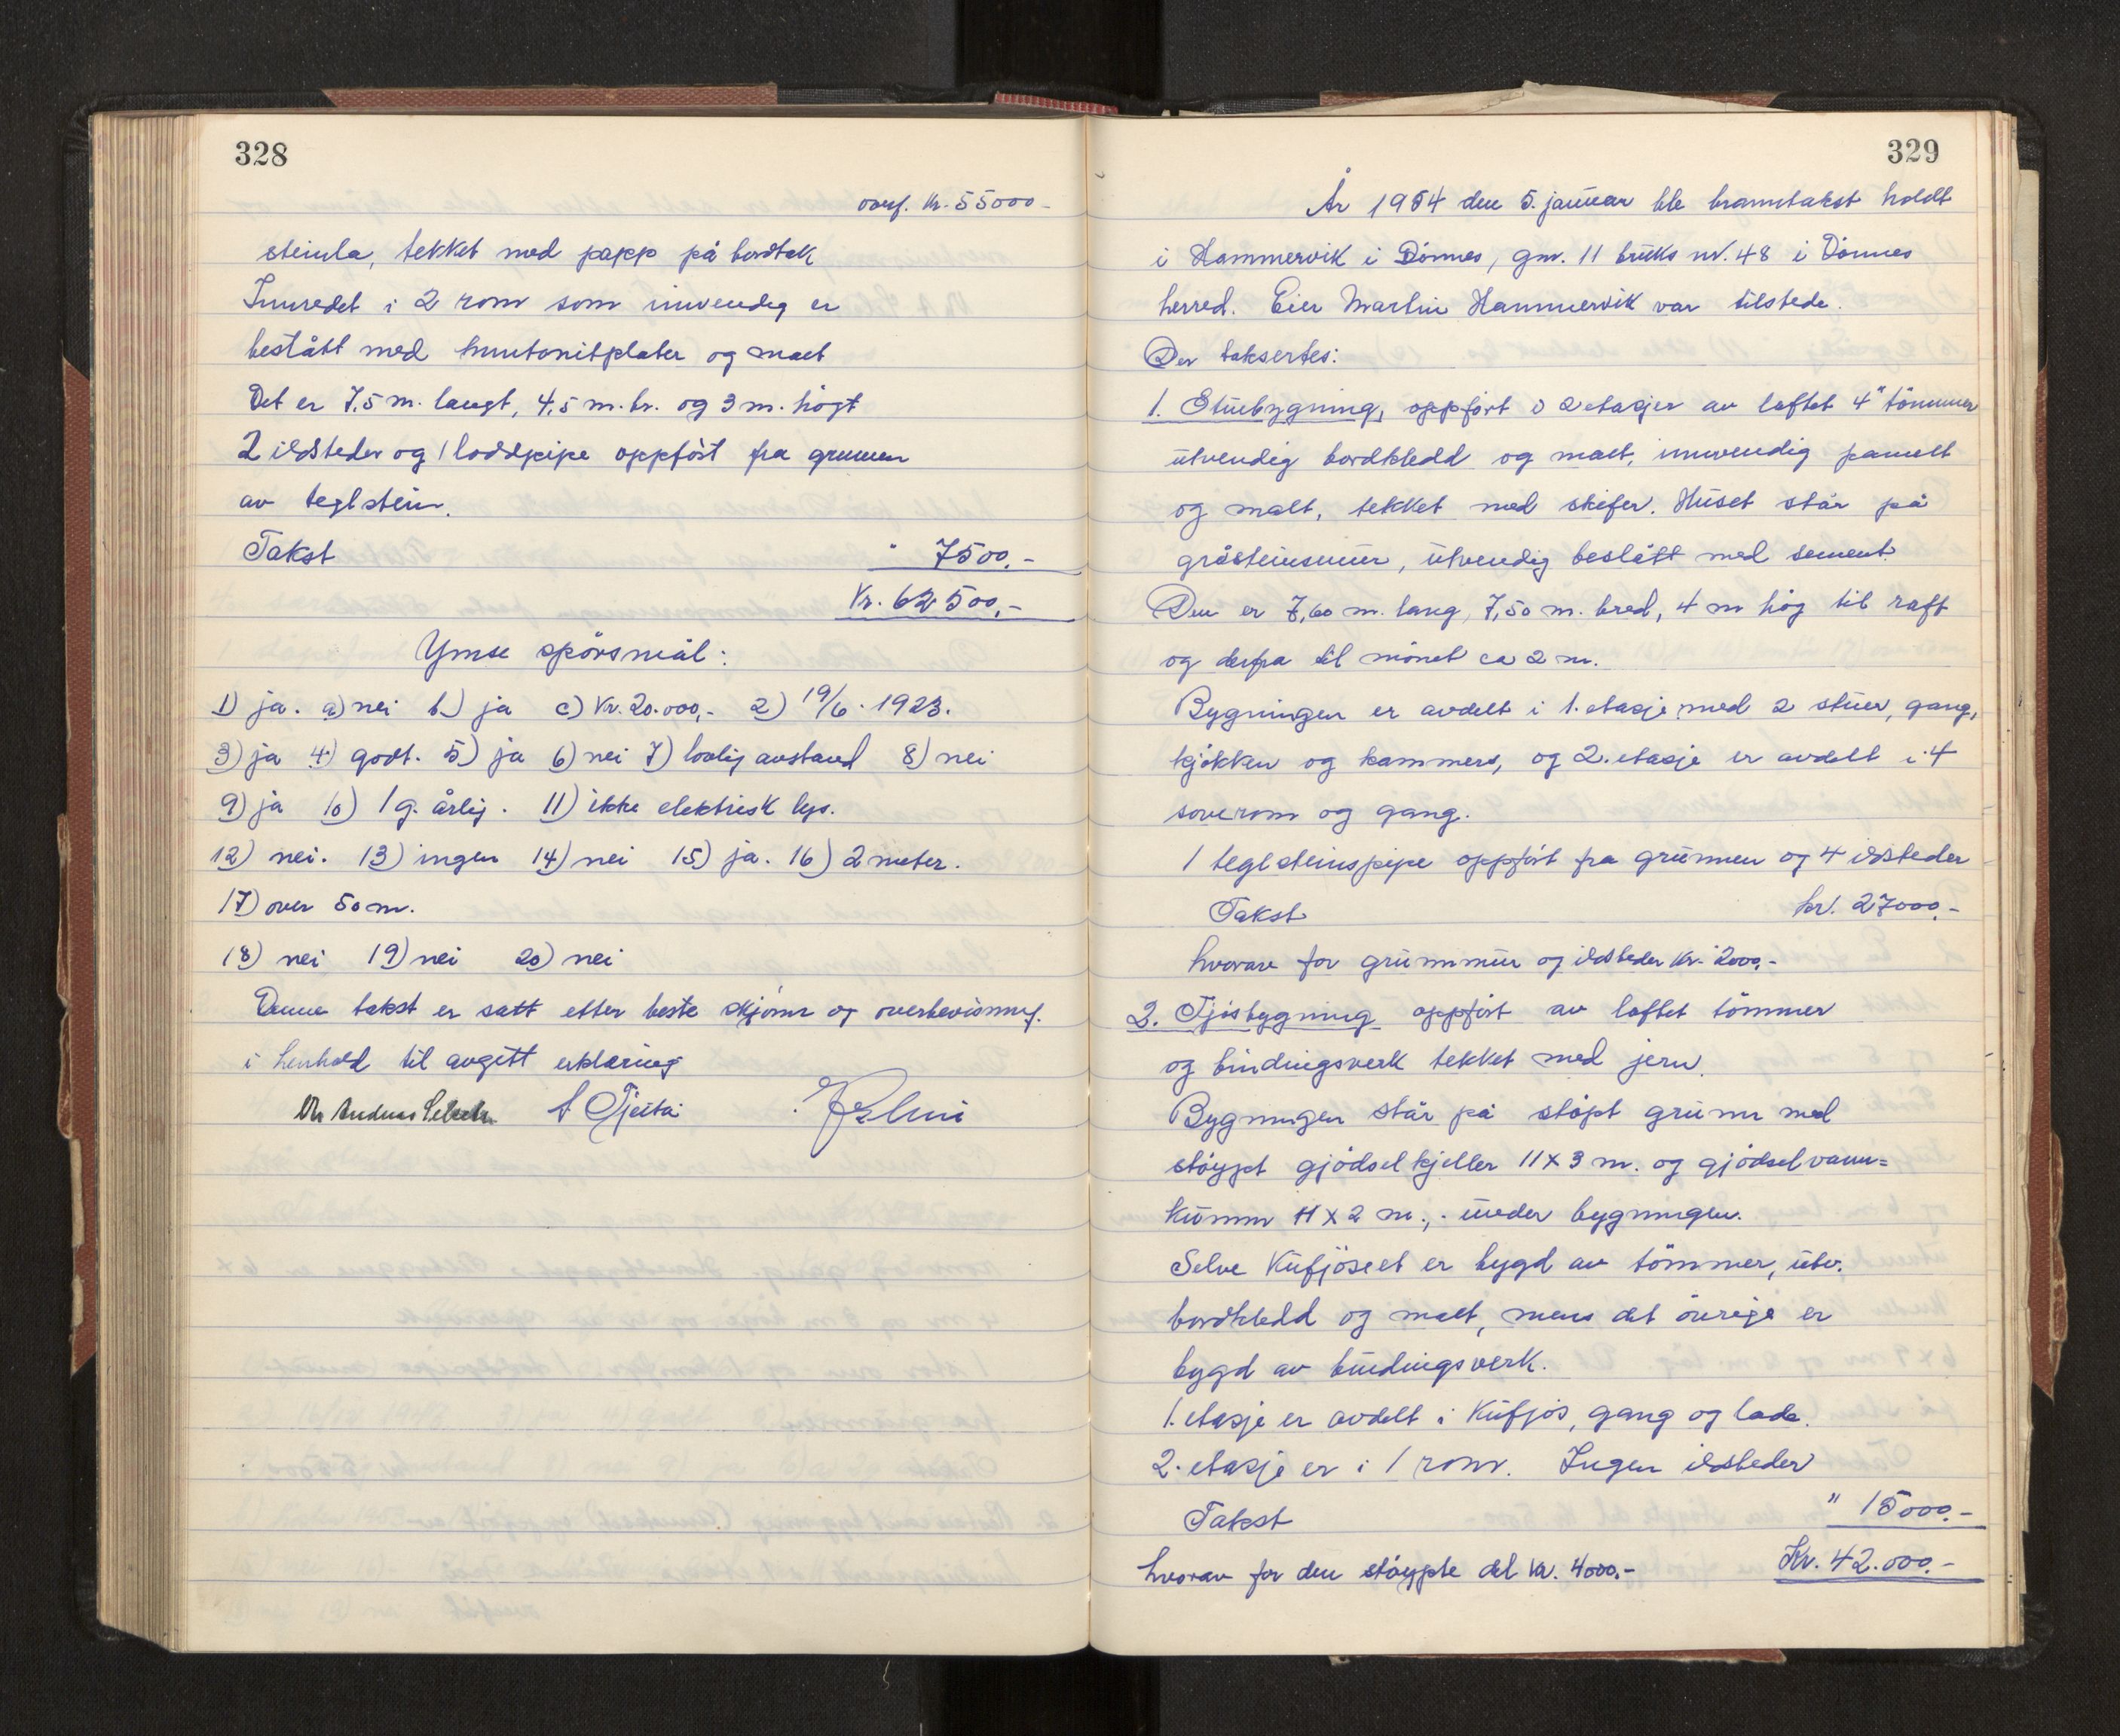 328
overf. kr. 55000-
steinla, tekket med papp på bordtak
Innredet i 2 rom som innvendig er
bestått med huntonitplater og malt
Det er 7,5 m. langt, 4,5 m. br. og 3 m. högt
2 ildsteder og 1 loddpipe oppfört fra grunnen
av teglstein.
Takst " 7500.-
Kr. 62500,-
Ymse spörsmål:
1) ja. a) nei b) ja c) Kr. 20.000,- 2) 19/6. 1923.
3) ja 4) godt. 5) ja 6) nei 7) lovlig avstand 8) nei
9) ja 10) 1 g. årlig. 11) ikke elektrisk lys.
12) nei. 13) ingen 14) nei 15) ja. 16) 2 meter.
17) over 50 m.
18) nei 19) nei 20) nei
Denne takst er satt etter beste skjönn og overbevisning.
i henhold til avgitt erklæring
Andreas A Tjeita
329
År 1954 den 5. januar ble branntakst holdt
i Hammervik i Dönnes, gnr. 11 bruks nr. 48 i Dönnes
herred. Eier Martin Hammervik var tilstede.
Der taksertes:
1. Stuebygning, oppfört i 2 etasjer av laftet 4" tömmer
utvendig bordkledd og malt, innvendig panelt
og malt, tekket med skifer. Huset står på
gråsteinsmur, utvendig beslått med sement.
Den er 7,60 m. lang, 7,50 m. bred, 4 m hög til raft
og derfra til mönet ca 2 m.
Bygningen er avdelt i 1. etasje med 2 stuer, gang,
kjökken og kammers, og 2. etasje er avdelt i 4
soverom og gang.
1 teglsteinspipe oppfört fra grunnen og 4 ildsteder
Takst kr. 27000,-
hvorav for grunnmur og ildsteder kr. 2000,-
2. Fjösbygning oppfört av laftet tömmer
og bindingsverk tekket med jern.
Bygningen står på stöpt grunn med
stöypt gjödselkjeller 11 x 3 m. og gjödselvann=
kumm 11 x 2 m., under bygningen.
Selve Kufjöseet er bygd av tömmer, utv.
bordkledd og malt, mens det övrige er
bygd av bindingsverk.
1. etasje er avdelt i Kufjös, gang og lade.
2. etasje er i 1 rom. Ingen ildsteder
Takst " 15000.-
hvorav for den stöypte del kr. 4000.- Kr. 42.000.-